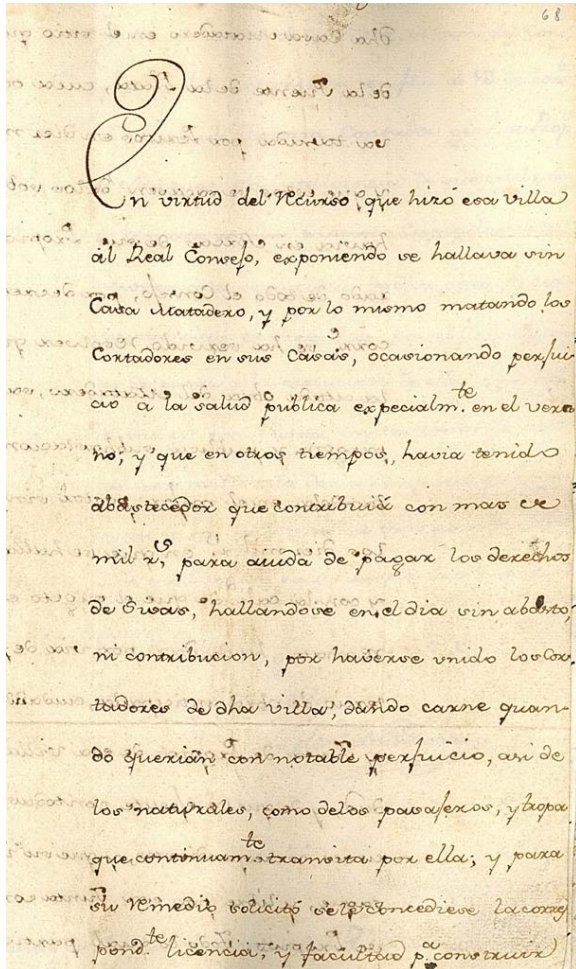 68
En virtud del Recurso, que hizó esa villa
al Real Consejo, exponiendo se hallava sin
Casa Matadero, y por lo mismo matando los
Cortadores en sus Casas, ocasionando perjui-
cio à la salud publica expecialm.te en el vera-
no, y que en otros tiempos, havia tenido
abastecedor que contribuiá con mas de
mil r.s, para aiuda de pagar los derechos
de Sisas, hallandose en el dia sin abasto,
ni contribucion, por haverse unido los Cor-
tadores de dha villa, dando carne quan-
do querian con notable perjuicio, asi de
los naturales, como de los pasajeros, y tropa
que continuam.te transita por ella; y para
su Remedio solicitó se le concediese la corres
pond.te licencia, y facultad p.a construir